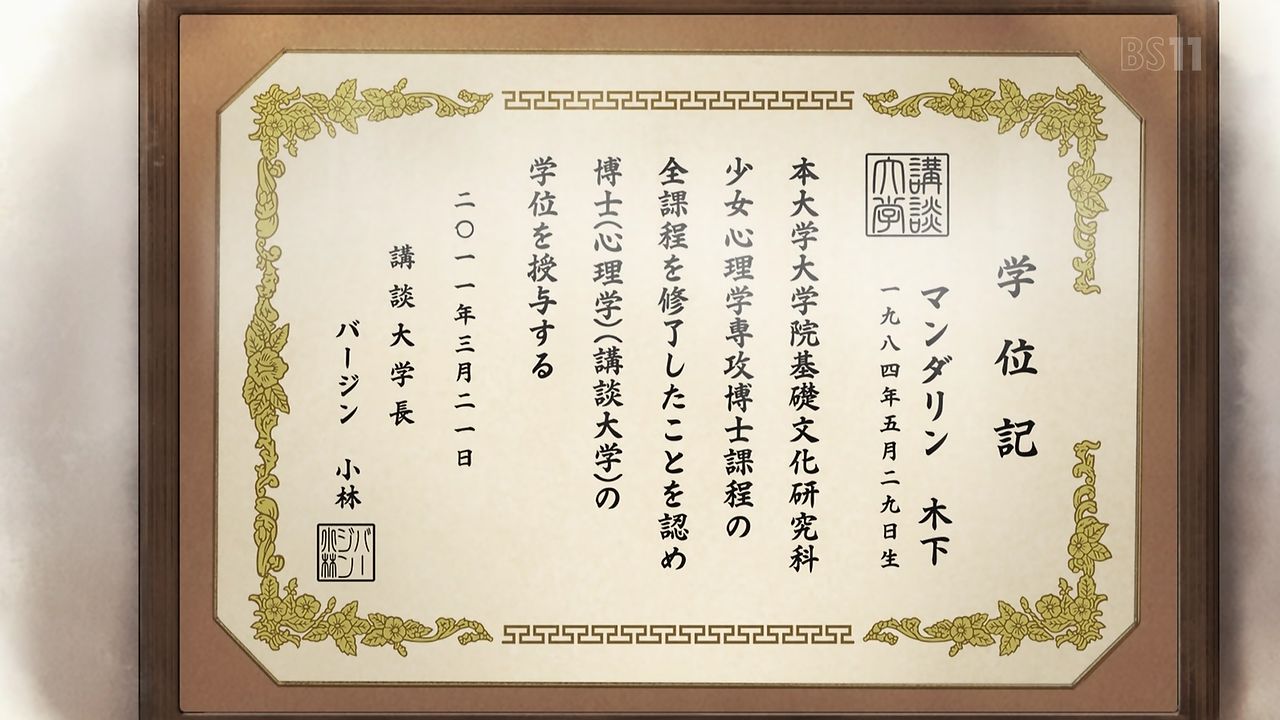 BS11
学位記
講談大学
マンダリン 木下
一九八四年五月二九日生
本大学大学院基礎文化研究科
少女心理学専攻博士課程の
全課程を修了したことを認め
博士(心理学)(講談大学)の
学位を授与する
二〇一一年三月二一日
講談大学長
バージン 小林
バージン小林